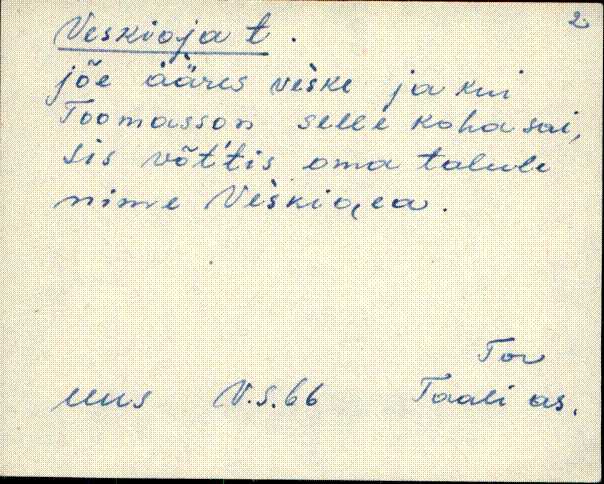 2.
Veskioja t.
jõe ääres veske ja kui
Toomasson selle koha sai,
sis võt't'is oma talule
nime Veskioea.
Tor
Uus V.S.66 Taali as.